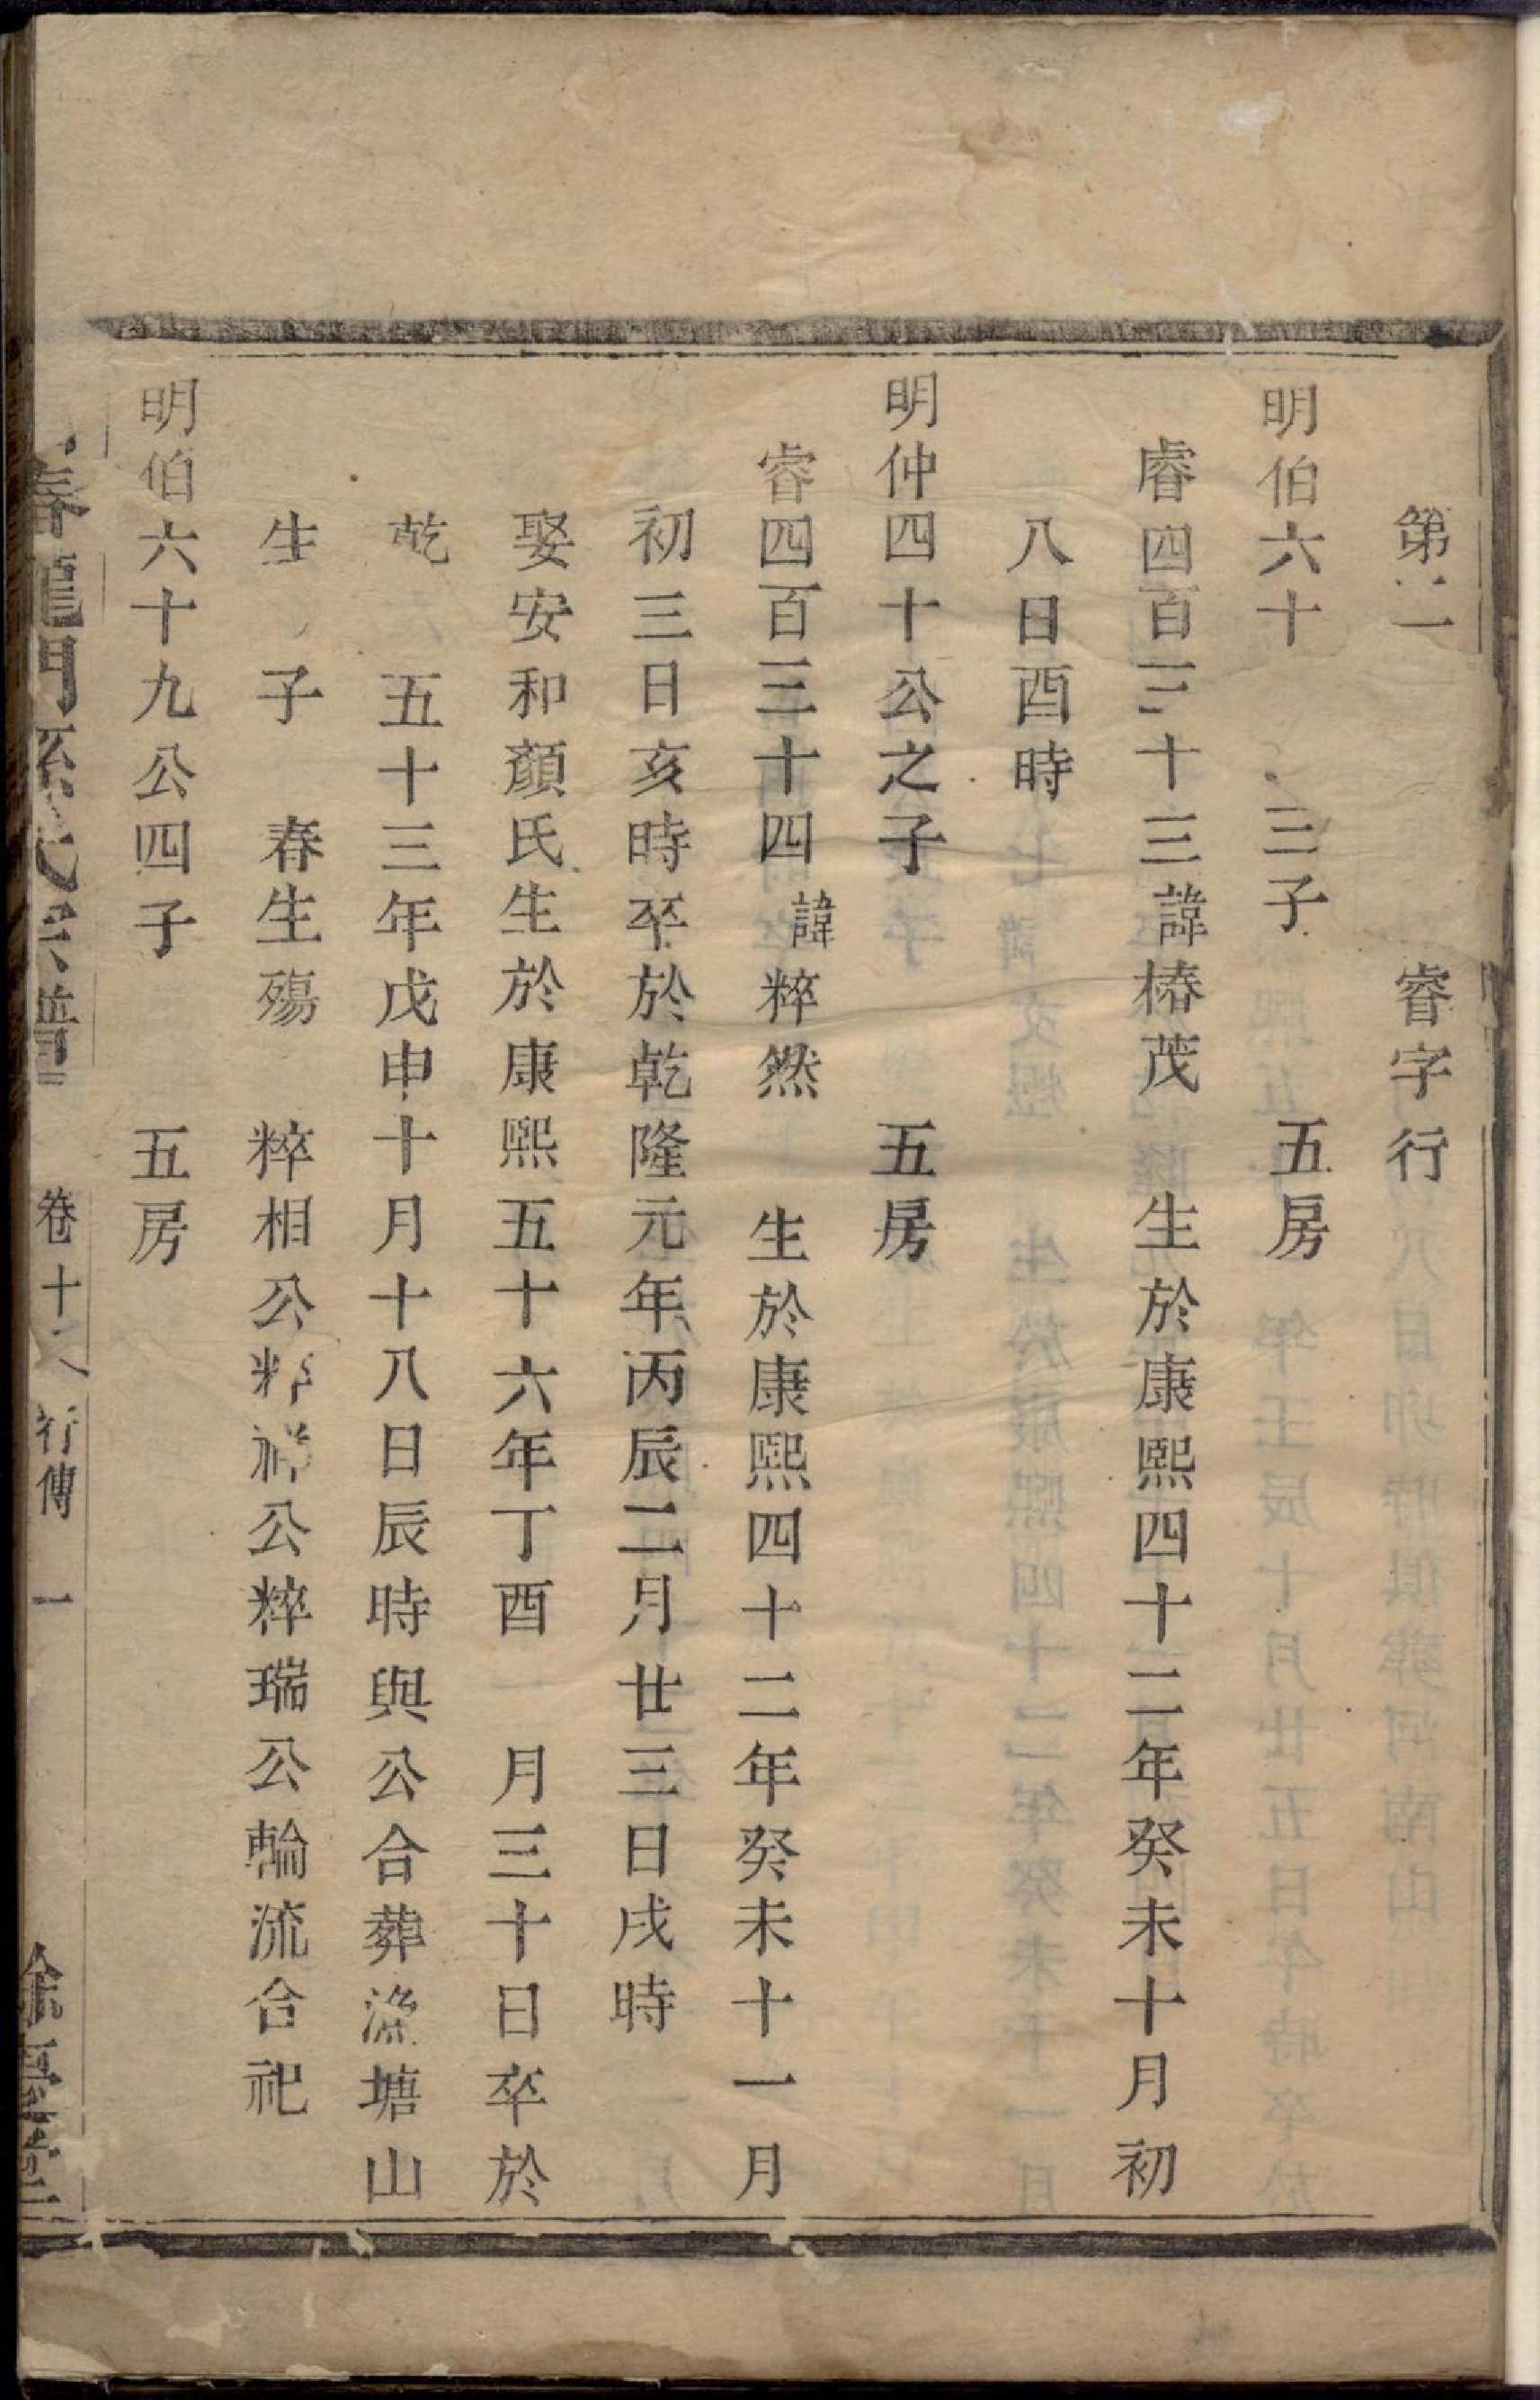 第二 睿字行
明伯六十 三子 五房
睿四百三十三諱椿茂 生於康熙四十二年癸未十月初
八日酉時
明仲四十公之子 五房
睿四百三十四諱粹然 生於康熙四十二年癸未十一月
初三日亥時卒於乾隆元年丙辰二月廿三日戌時
娶安和顏氏生於康熙五十六年丁酉 月三十日卒於
乾 五十三年戊申十月十八日辰時與公合葬 塘山
生 子 春生殤 粹相公 公粹瑞公輪流合祀
明伯六十九公四子 五房
春龍門 氏宗譜 卷十 行傳 一